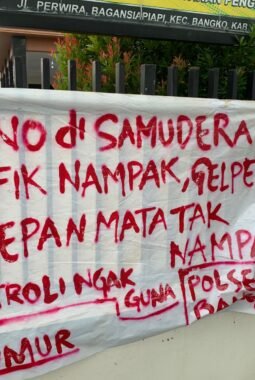 JL PERWIRA, BAGANSIAPIAPI, KEC. BANGKO, KAB
NO di SAMUDERA
FIK NAMPAK, GELPE
EPAN MATA TAK
NAMPA
TROLI NGAK GUNA
POLSE
IMUR